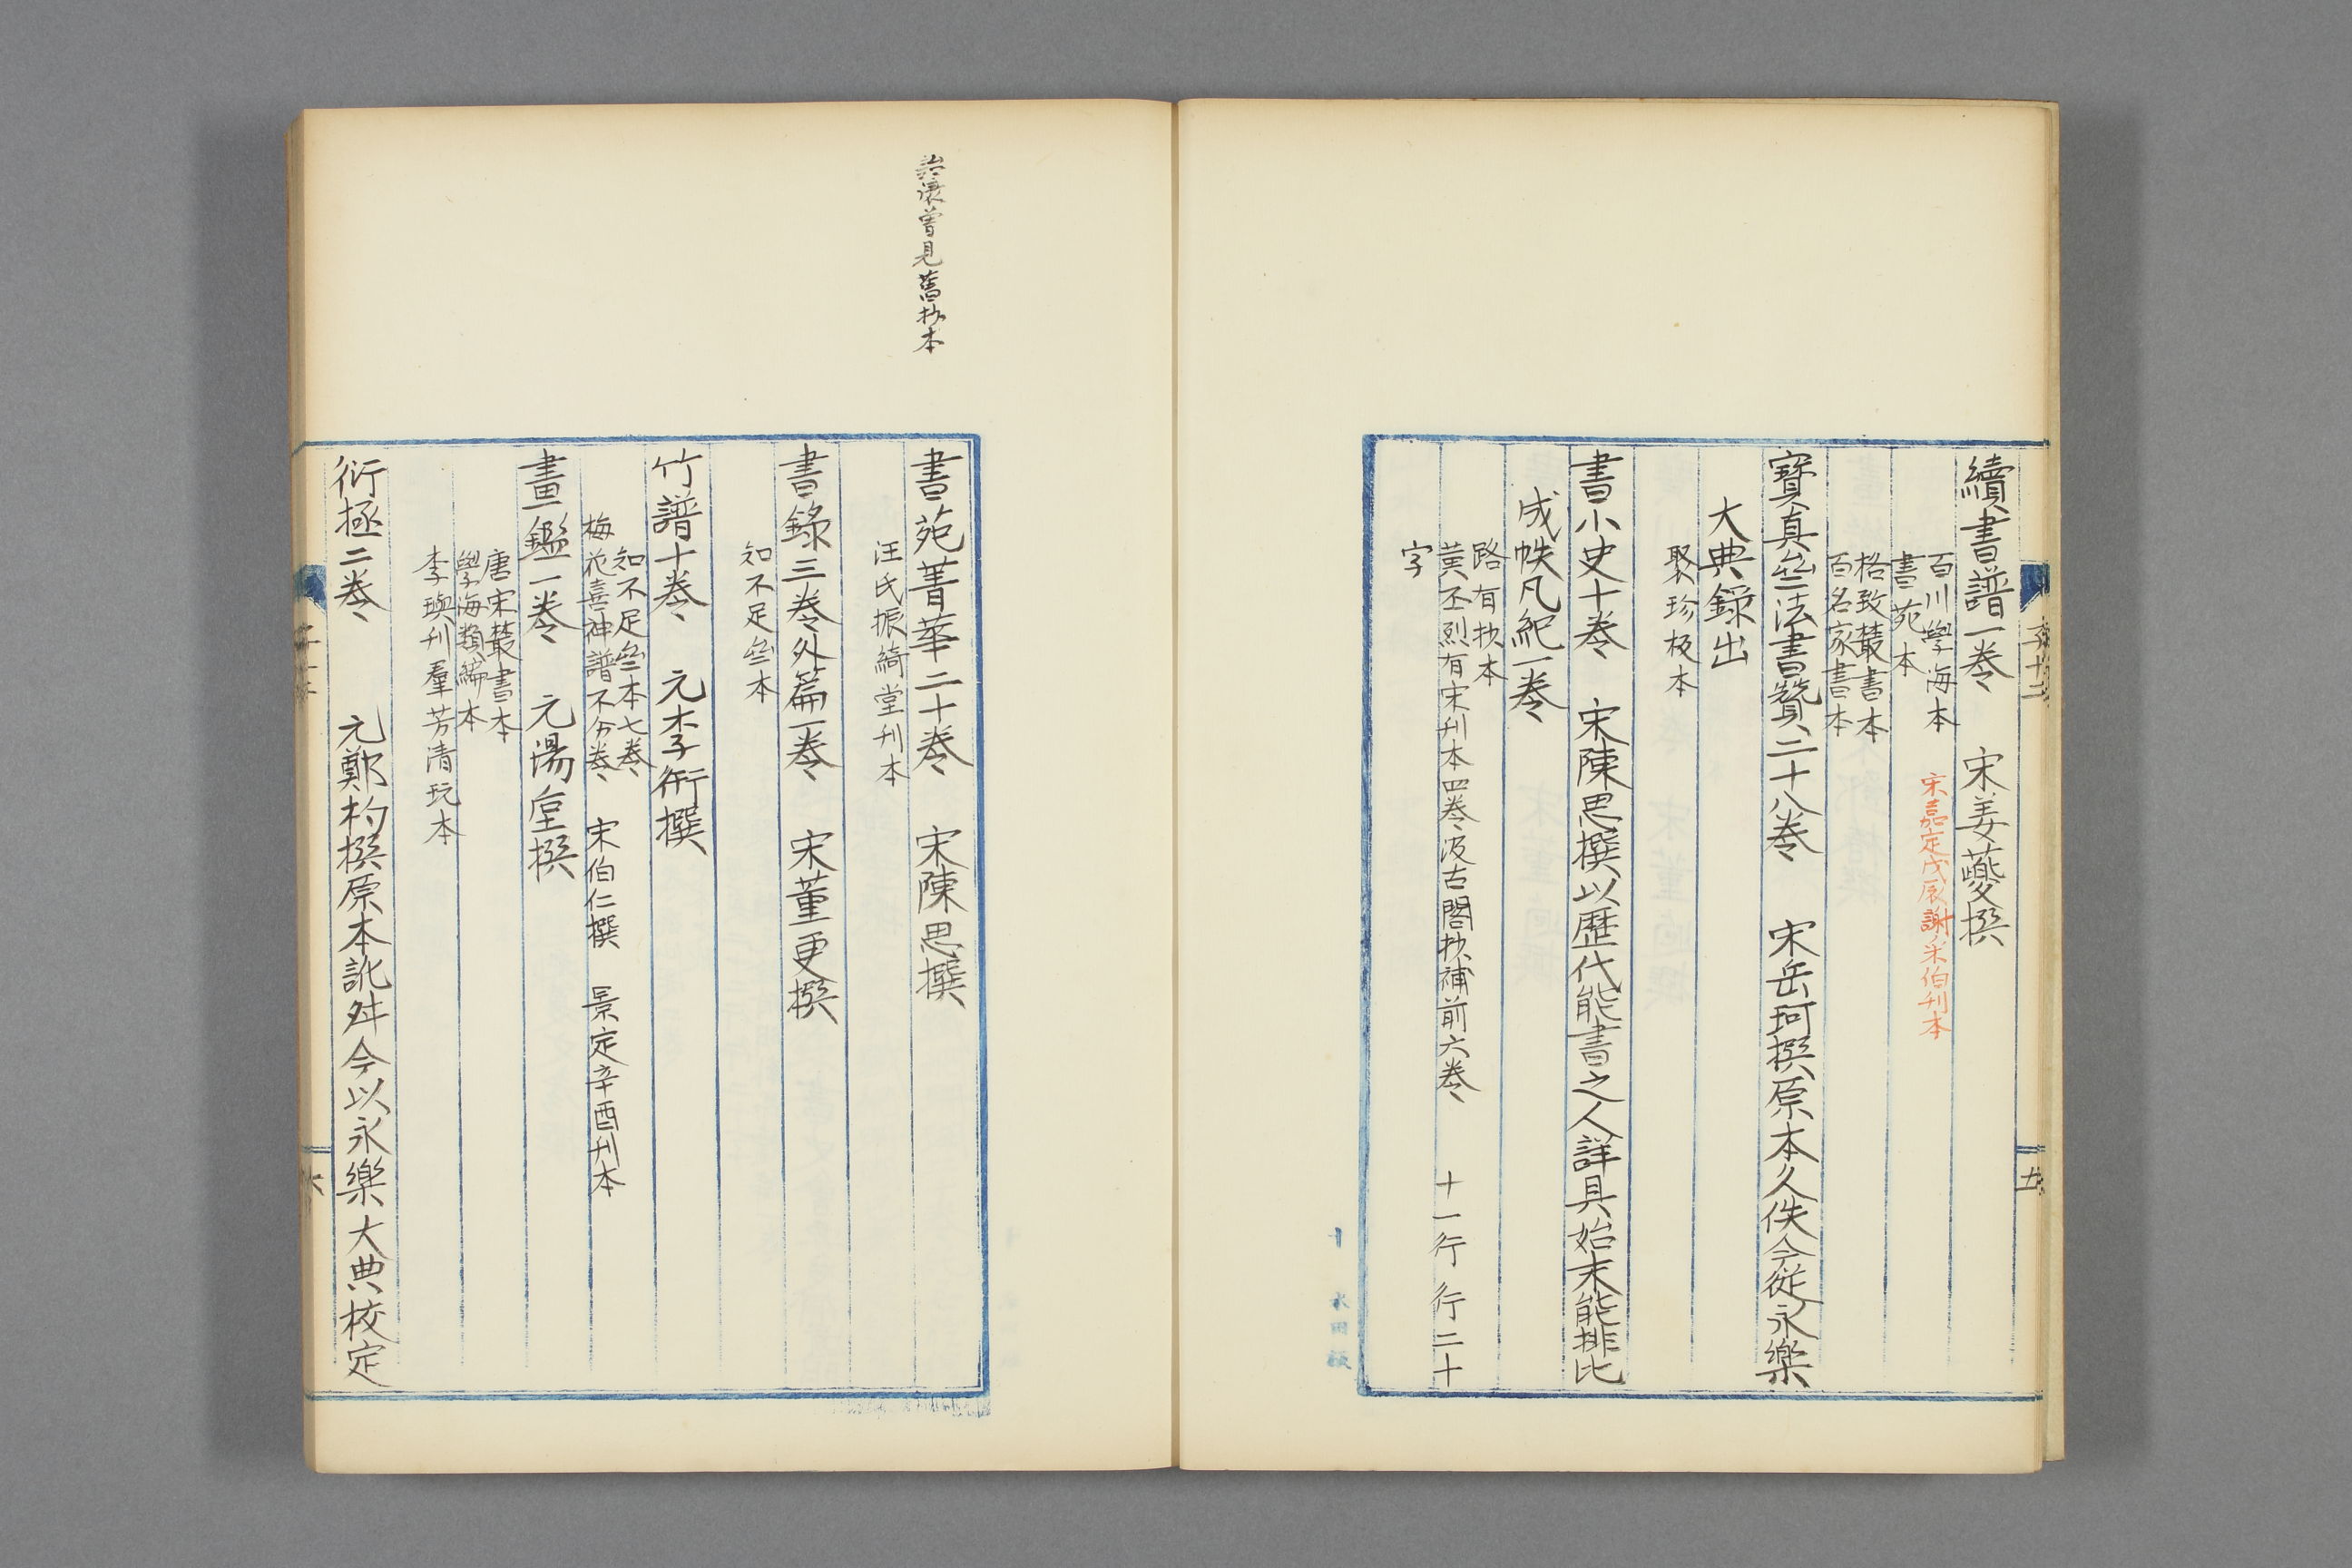 續書譜一卷　宋姜夔撰
百川學海本　宋嘉定戊辰謝釆伯刊本
書苑本
格致叢書本
百名家書本
寶真㕘法書贊二十八卷　宋岳珂撰原本久佚今從永樂
大典錄出
聚珍板本
書小史十卷　宋陳思撰以歷代能書之人詳具始末能排比
成帙凡紀一卷
路有抄本
黃丕烈有宋刊本四卷汲古閣抄補前六卷　十一行行二十
字
五
治讓曾見舊抄本
書苑菁華二十卷　宋陳思撰
汪氏振綺堂刊本
書錄三卷外篇一卷　宋董更撰
知不足㕘本
竹譜十卷　元李衎撰
知不足㕘本七卷
梅花喜神譜不分卷　宋伯仁撰　景定辛酉刊本
畫鑑一卷　元湯垕撰
唐宋叢書本
學海類編本
李璵刊羣芳清玩本
衍極二卷　元鄭杓撰原本訛舛今以永樂大典校定
六